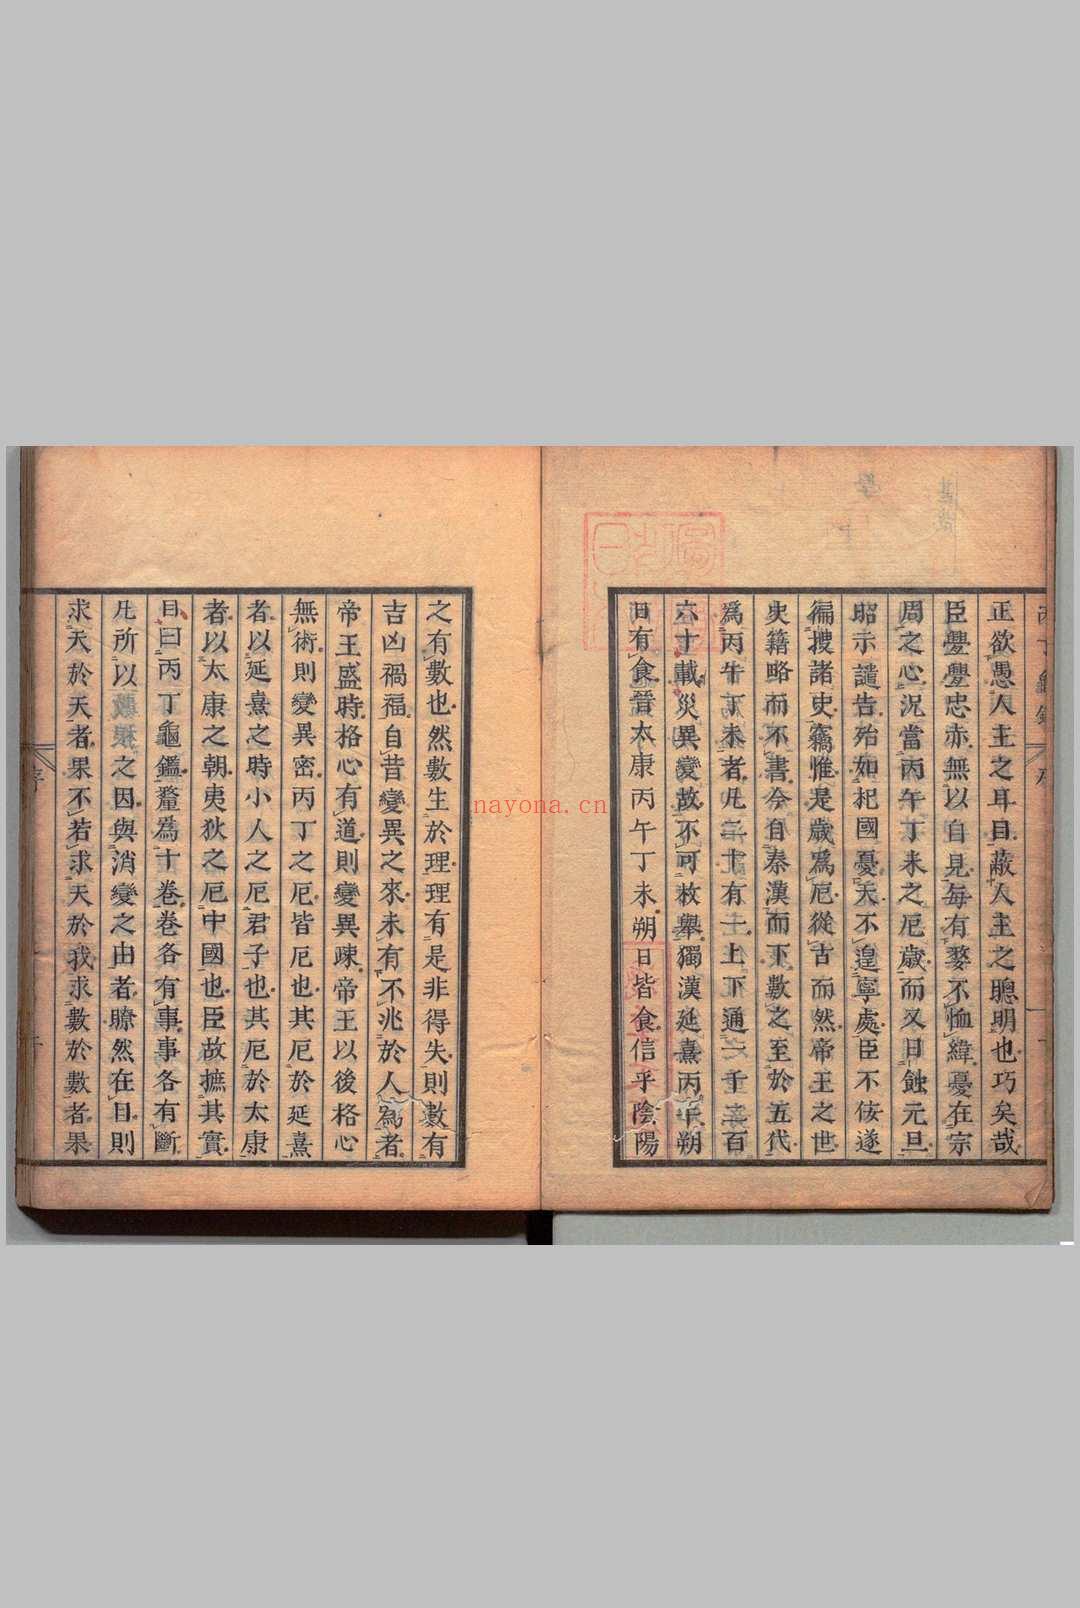 丙丁龜鑑 序
正欲愚人主之耳目蔽人主之聰明也巧矣哉
臣舋舋忠赤無以自見每有嫠不恤緯憂在宗
周之心況當丙午丁未之厄歲而又日蝕元旦
昭示譴告殆如杞國憂天不遑寧處臣不佞遂
徧搜諸史竊惟是歲為厄從古而然帝王之世
史籍略而不書今自秦漢而下數之至於五代
為丙午丁未者凡二十有一上下通一千二百
六十載災異變故不可枚舉獨漢延熹丙午朔
日有食晉太康丙午丁未朔日皆食信乎陰陽
之有數也然數生於理理有是非得失則數有
吉凶禍福自昔變異之來未有不兆於人為者
帝王盛時格心有道則變異疎帝王以後格心
無術則變異密丙丁之厄皆厄也其厄於延熹
者以延熹之時小人之厄君子也其厄於太康
者以太康之朝夷狄之厄中國也臣故摭其實
目曰丙丁龜鑑釐為十卷卷各有事事各有斷
凡所以之因與消變之由者瞭然在目則
求天於天者果不若求天於我求數於數者果
序
nayona.cn